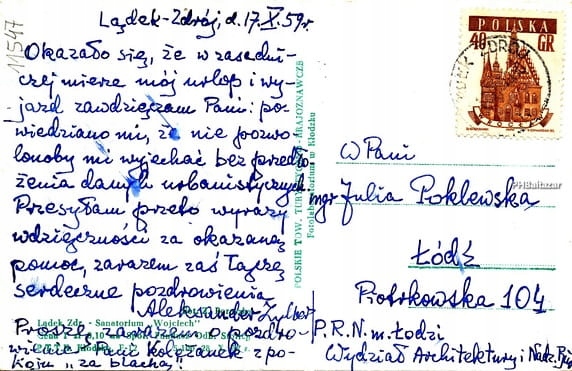 11547
Lądek-Zdrój d. 17.X.59r.
Okazało się, że w zasadni-
czej mierze mój urlop i wy-
jazd zawdzięczam Pani: po-
wiedziano mi, że nie pozwo-
lonoby mi wyjechać bez przedło-
żenia danych urbanistycznych.
Przesyłam przeto wyrazy
wdzięczności za okazaną
pomoc, zarazem zaś łączę
serdeczne pozdrowienia
Aleksander
Proszę zarazem o pozdro-
wienie Pani Koleżanek z po-
koju "za blachą".
Lądek Zdr. - Sanatorium „Wojciech”
POLSKIE TOW. TURYSTYCZNO-KRAJOZNAWCZE
Fotolaboratorium w Kłodzku
POLSKA
40 GR
WROCŁAW
ZDRÓJ
PHBaltazar
W Pani
mgr Julia Poklewska
Łódź
Piotrkowska 104
P.R.N. m. Łodzi
Wydział Architektury i Nadz. Bud